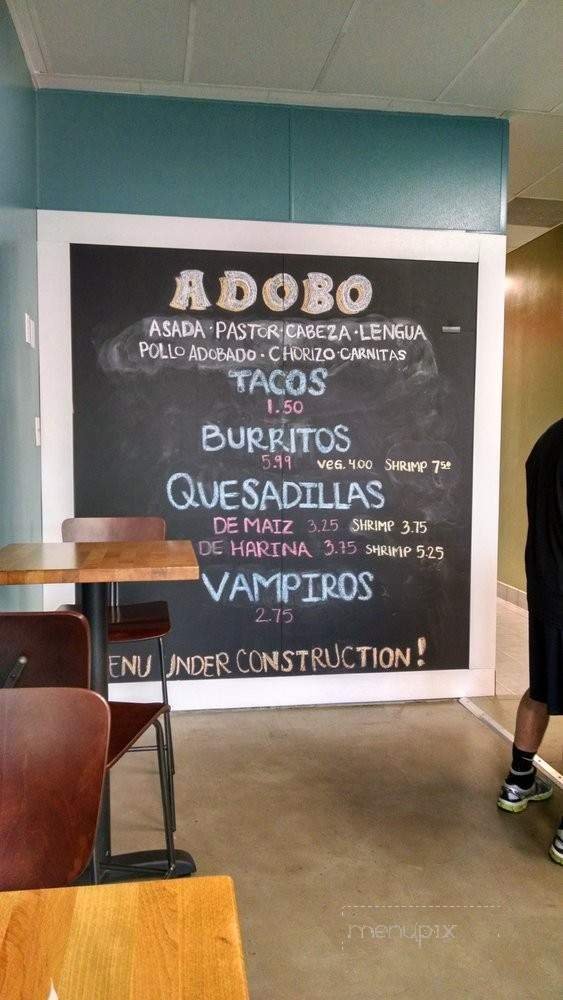 ADOBO
ASADA · PASTOR · CABEZA · LENGUA
POLLO ADOBADO · CHORIZO · CARNITAS
TACOS
1.50
BURRITOS
5.99 VEG. 4.00 SHRIMP 7.50
QUESADILLAS
DE MAIZ 3.25 SHRIMP 3.75
DE HARINA 3.75 SHRIMP 5.25
VAMPIROS
2.75
ENU UNDER CONSTRUCTION!
menupix